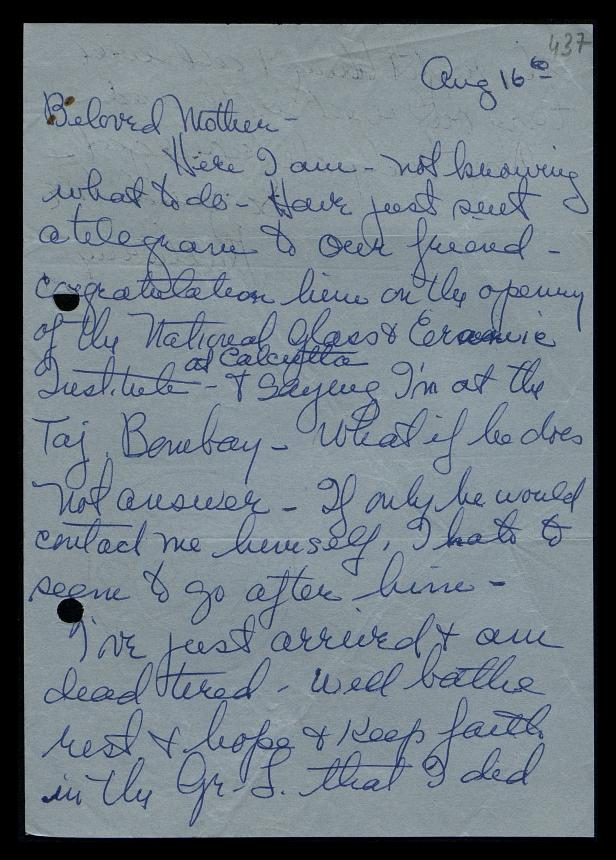 437
Aug 16th
Beloved Mother -
Here I am - not knowing
what to do - Have just sent
a telegram to our friend -
congratulation him on the opening
of the National Glass & Ceramic
at Calcutta
Institute - & saying I'm at the
Taj, Bombay - What if he does
not answer - If only he would
contact me himself, I hate to
seem to go after him -
I've just arrived & am
dead tired - will bathe
rest & hope & keep faith
in the Gr. S. that I did